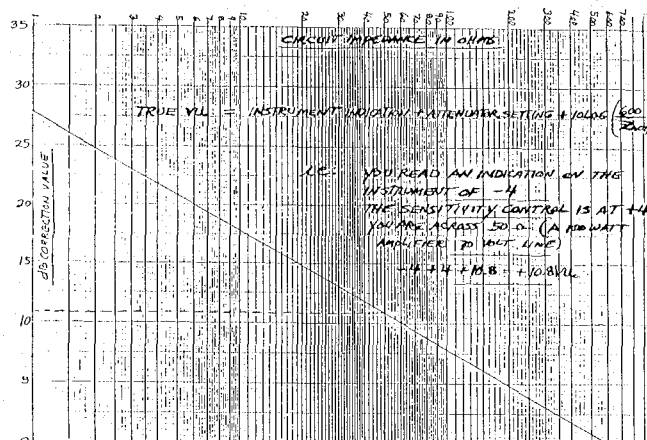 1 2 3 4 5 6 7 8 9 10 20 30 40 50 60 70 80 90 100 200 300 400 500 600 700
CIRCUIT IMPEDANCE IN OHMS
35
30
25
20
15
10
5
0
dB CORRECTION VALUE
TRUE VU = INSTRUMENT INDICATION + ATTENUATOR SETTING + 10LOG (600
i.e. YOU READ AN INDICATION ON THE
INSTRUMENT OF -4
THE SENSITIVITY CONTROL IS AT +4
YOU ARE ACROSS 50 Ω (A 100 WATT
AMPLIFIER 70 VOLT LINE)
-4 + 4 + 10.8 = +10.8 VU